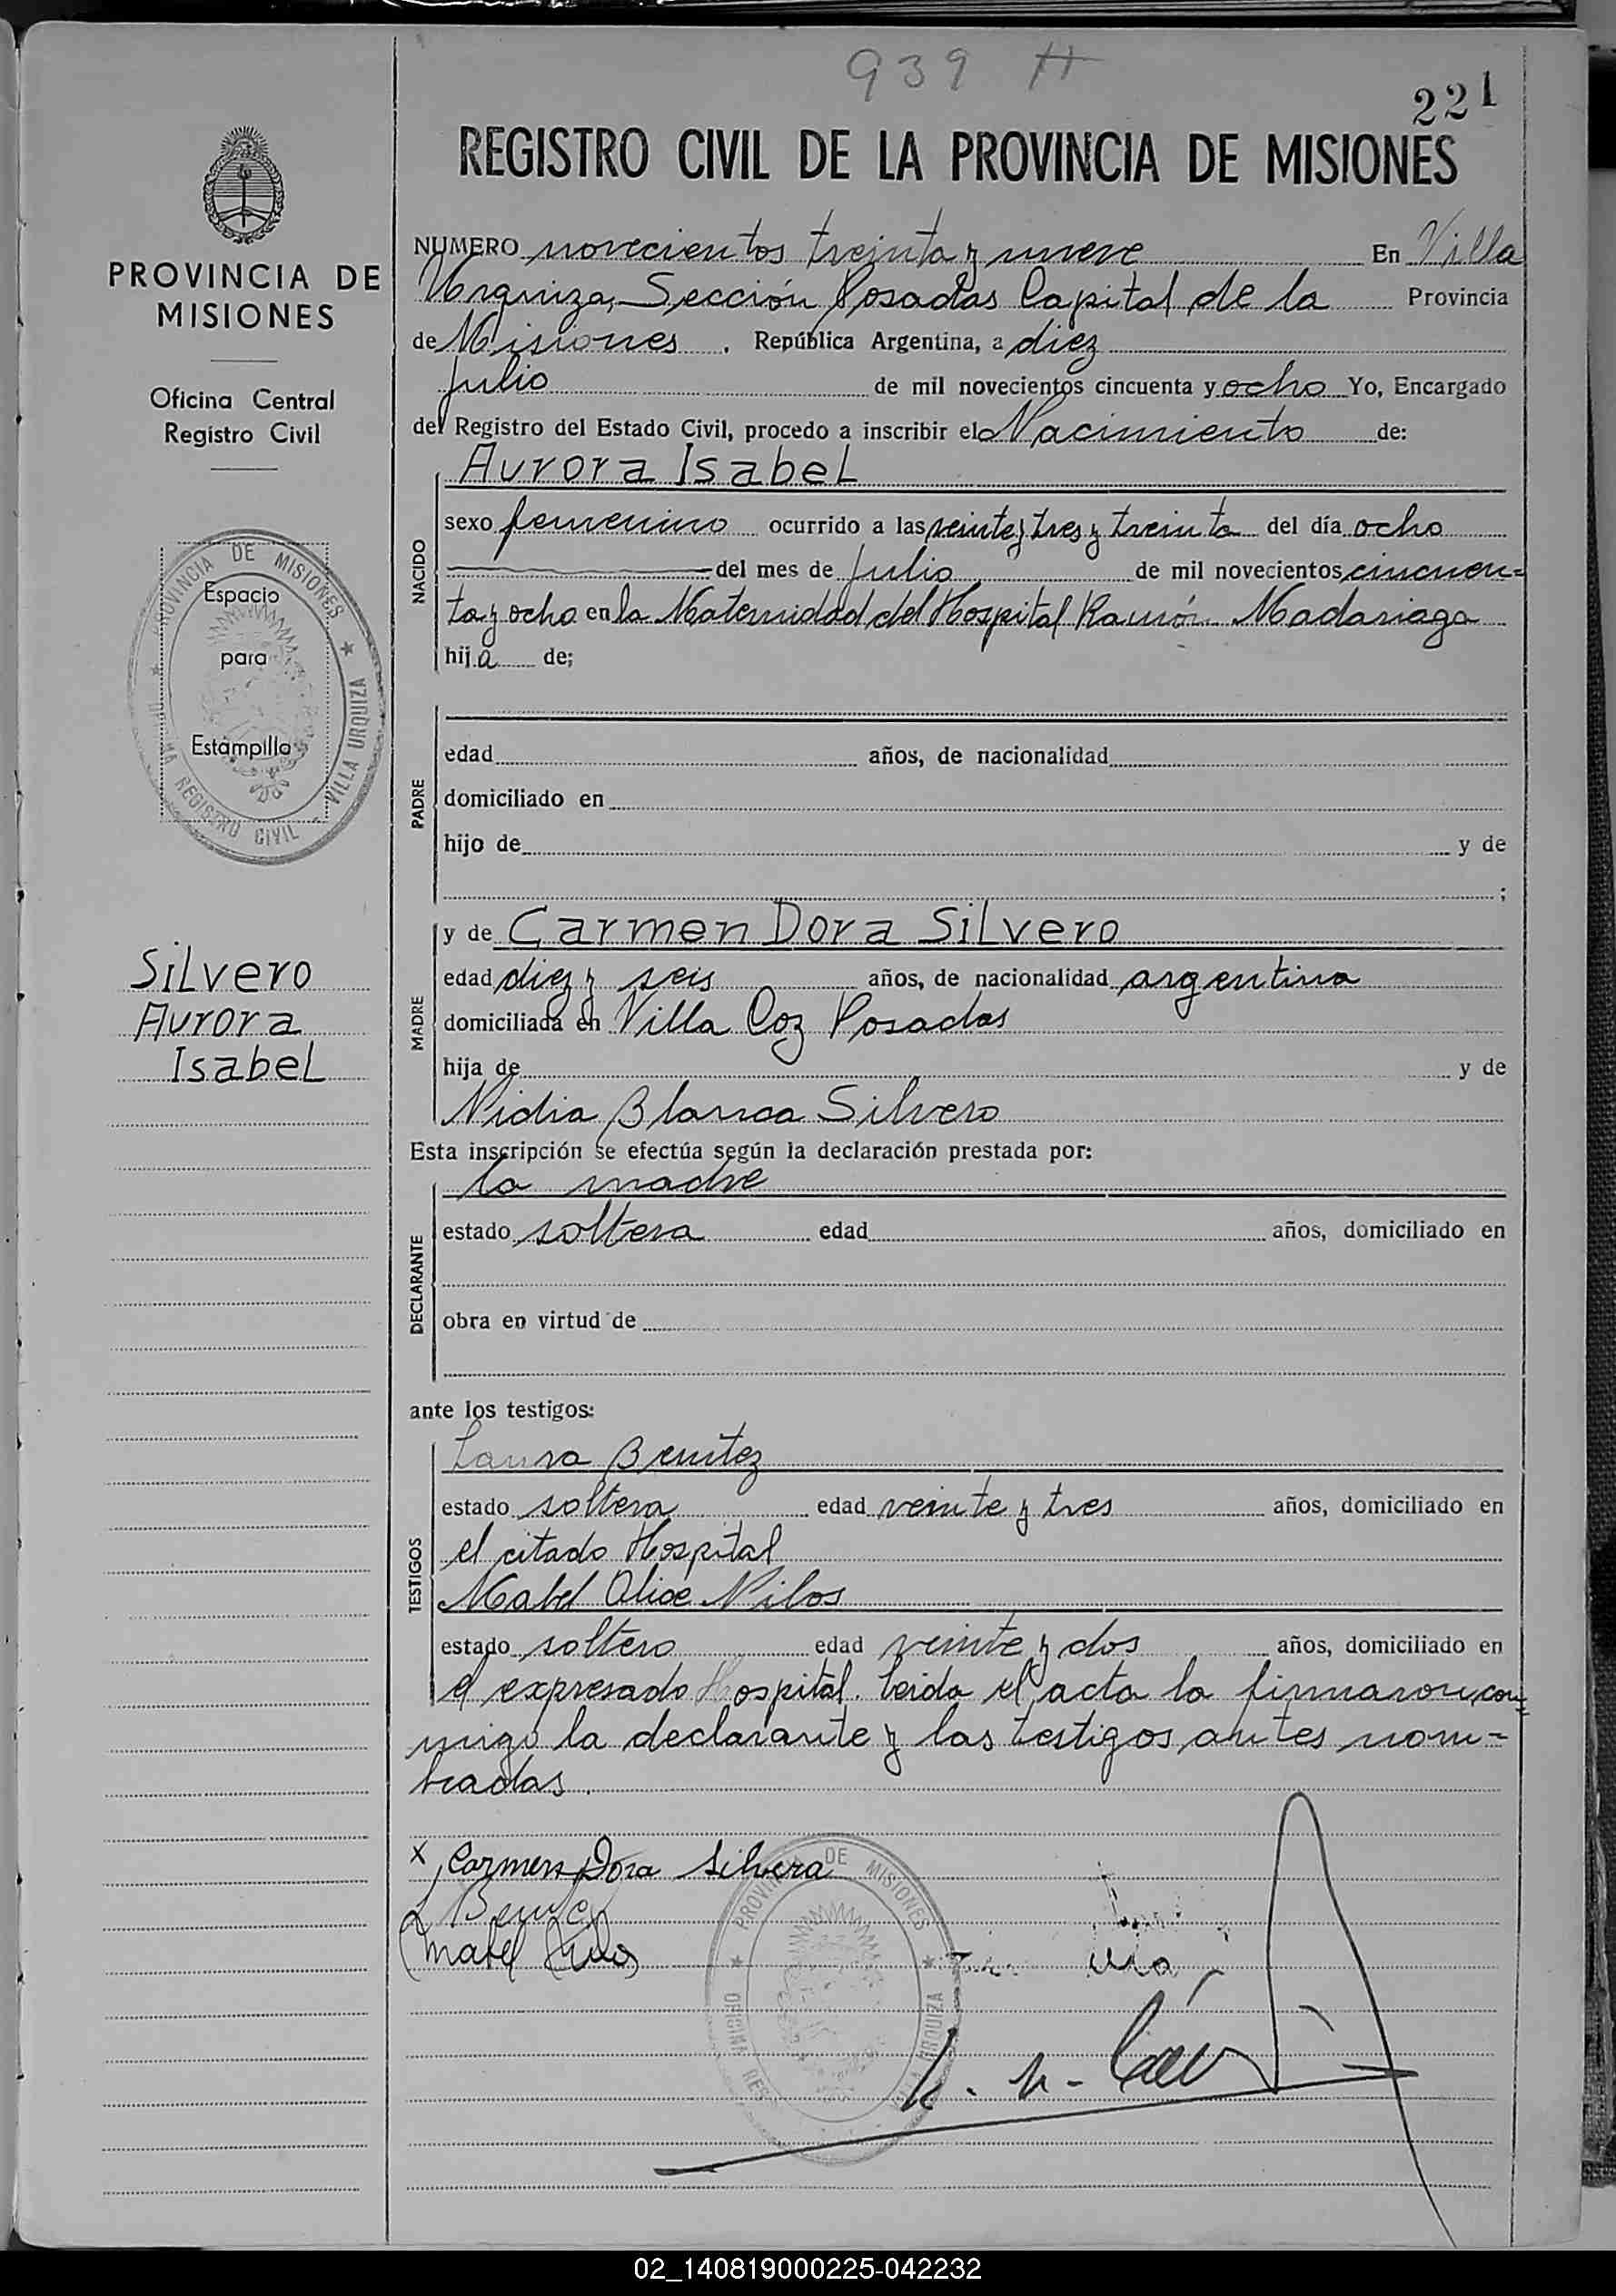 939 H
221
REGISTRO CIVIL DE LA PROVINCIA DE MISIONES
PROVINCIA DE
MISIONES
Oficina Central
Registro Civil
PROVINCIA DE MISIONES
REGISTRO CIVIL VILLA URQUIZA
Espacio
para
Estampilla
Silvero
Aurora
Isabel
NUMERO novecientos treinta y nueve En Villa
Urquiza, Sección Posadas Capital de la Provincia
de Misiones . República Argentina, a diez
Julio de mil novecientos cincuenta y ocho Yo, Encargado
del Registro del Estado Civil, procedo a inscribir el Nacimiento de:
NACIDO
Aurora Isabel
sexo femenino ocurrido a las veinte y tres y treinta del día ocho
del mes de Julio de mil novecientos cincuen=
ta y ocho en la Maternidad del Hospital Ramón Madariaga
hija de;
PADRE
edad años, de nacionalidad
domiciliado en
hijo de y de
;
MADRE
y de Carmen Dora Silvero
edad diez y seis años, de nacionalidad argentina
domiciliada en Villa Coz Posadas
hija de y de
Nidia Blanca Silvero
Esta inscripción se efectúa según la declaración prestada por:
DECLARANTE
la madre
estado soltera edad años, domiciliado en
obra en virtud de
ante los testigos:
TESTIGOS
Laura Benitez
estado soltera edad veinte y tres años, domiciliado en
el citado Hospital
Mabel Alice Nilos
estado soltero edad veinte y dos años, domiciliado en
el expresado Hospital. Leida el acta la firmaron con=
migo la declarante y las testigos antes nom-
bradas.
x Carmen Dora Silvera
L Benitez
Mabel
PROVINCIA DE MISIONES
OFICINA URQUIZA
02_140819000225-042232